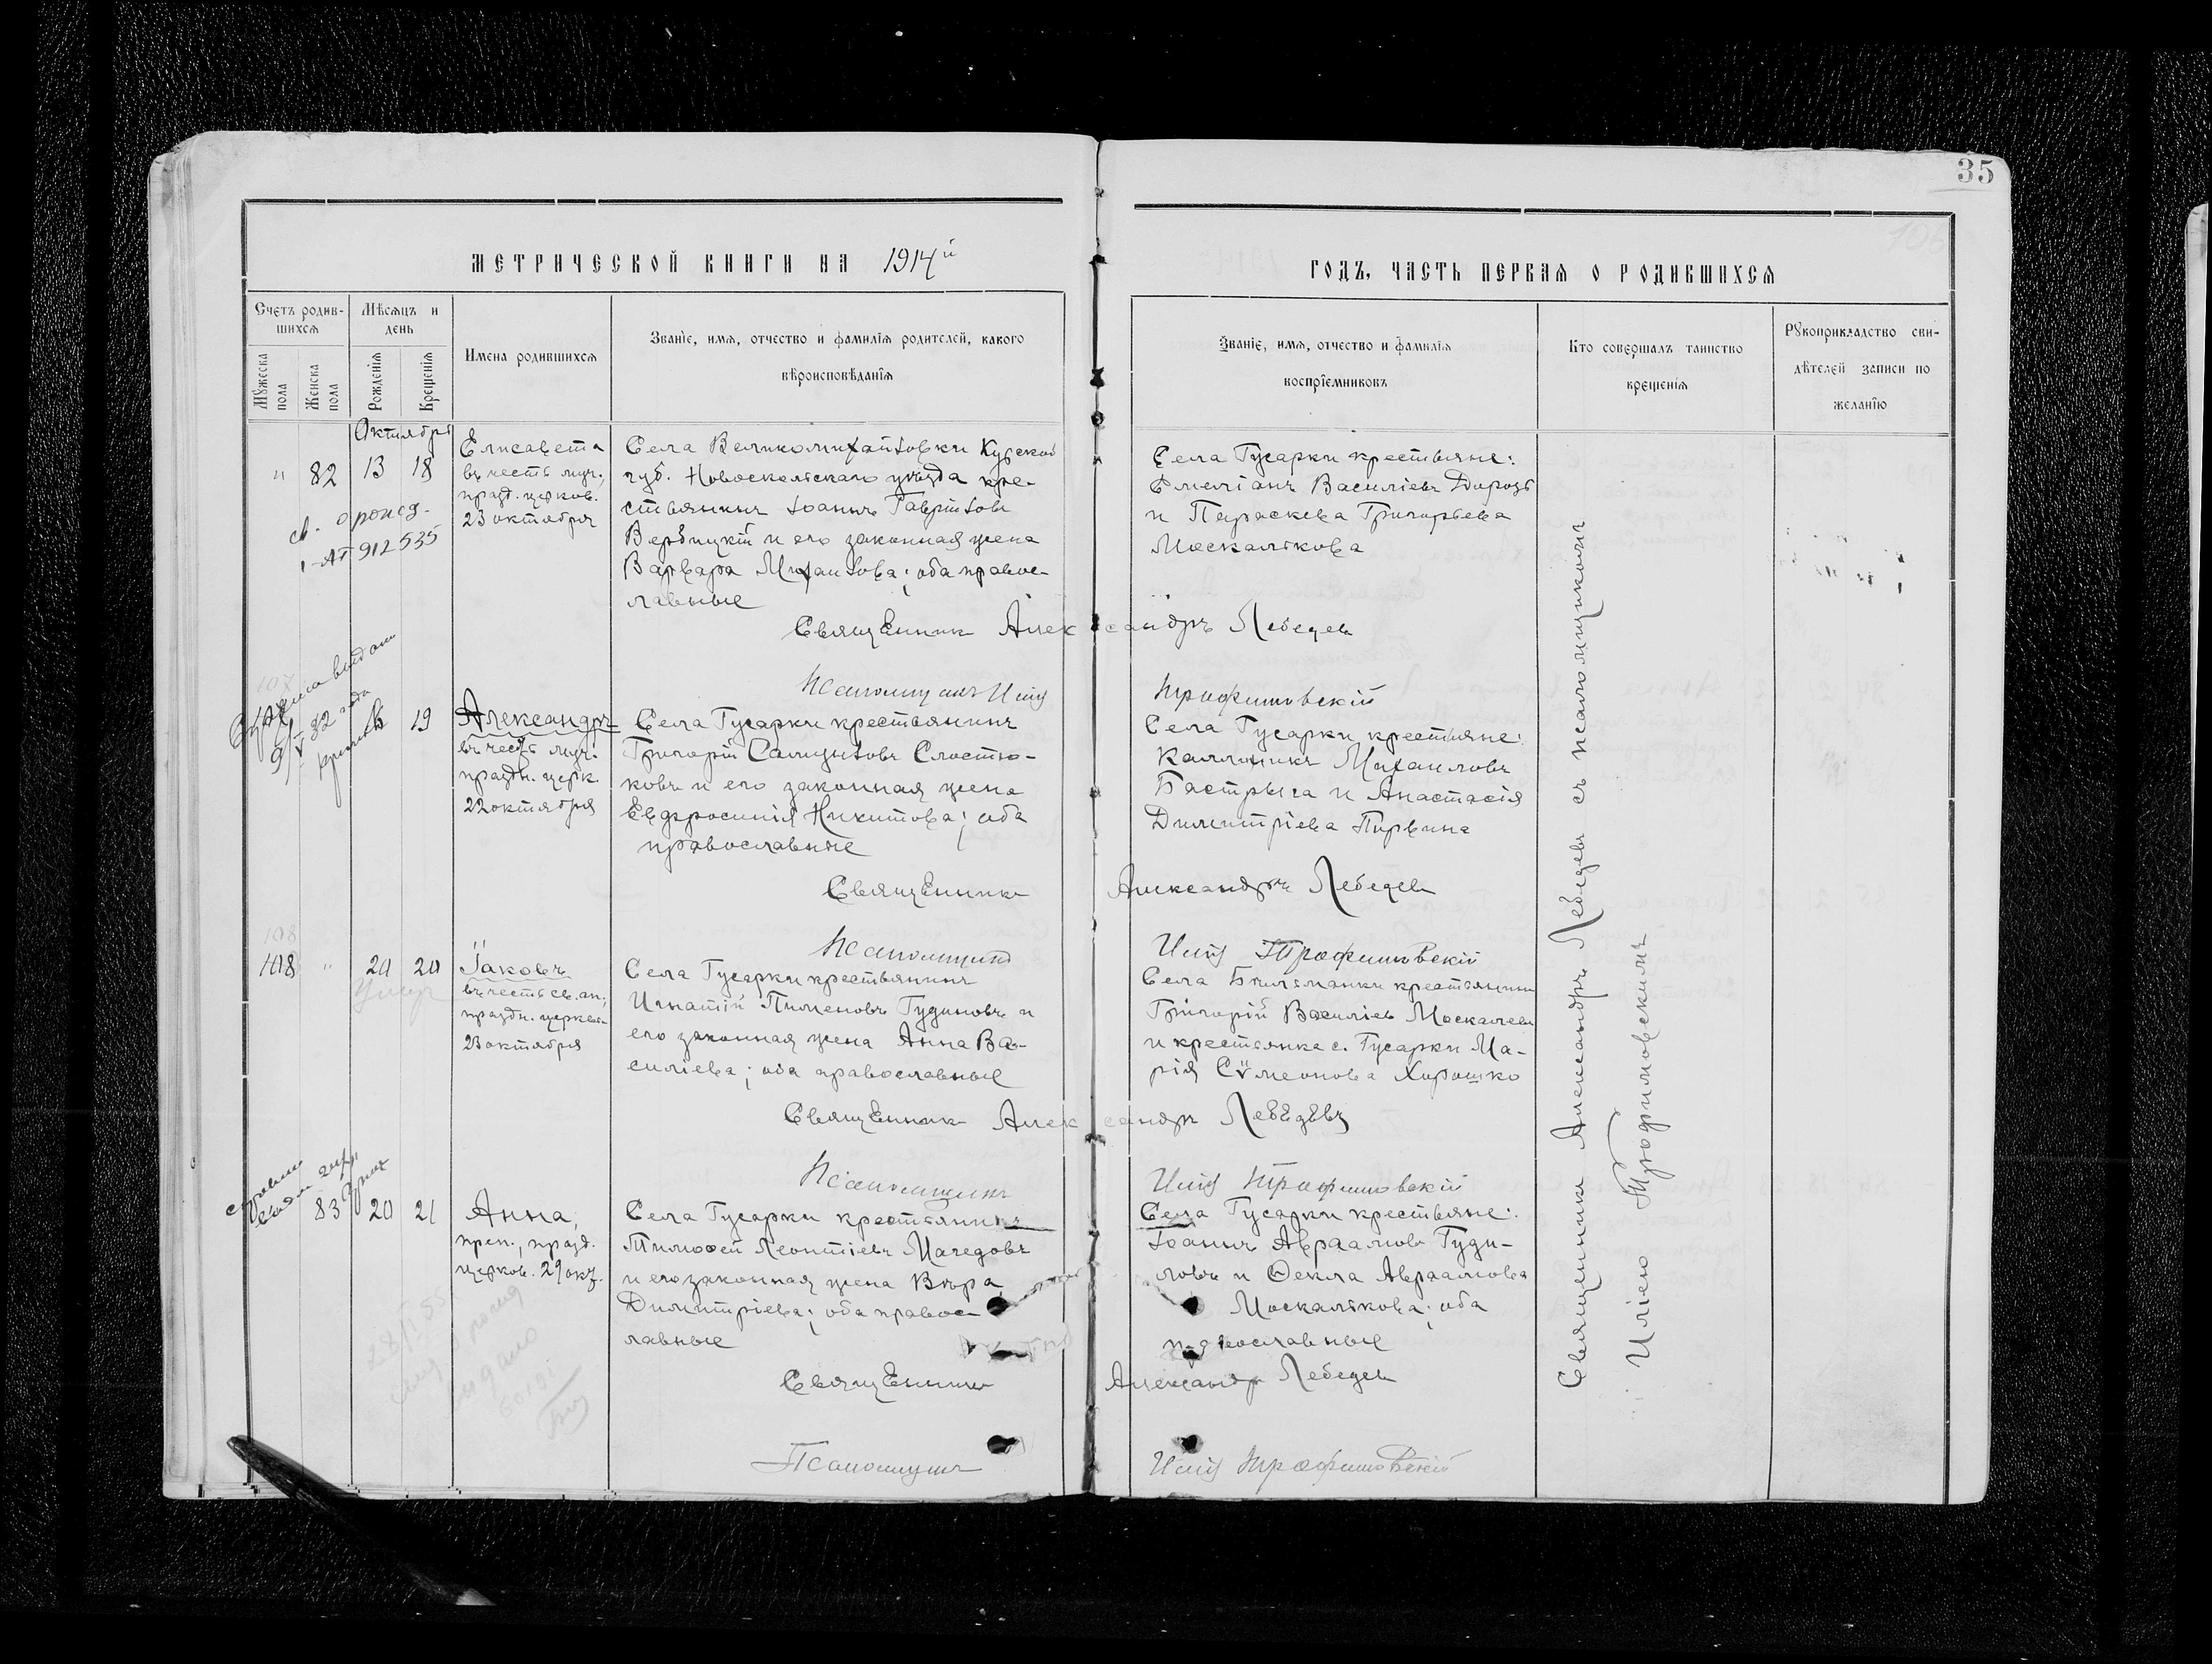 35
МЕТРИЧЕСКОЙ КНИГИ НА 1914й
ГОДЪ, ЧАСТЬ ПЕРВАЯ О РОДИВШИХСЯ
Счетъ родив-
шихся
Мѣсяцъ и
день
Мужеска
пола
Женска
пола
Рожденія
Крещенія
Имена родившихся
Званіе, имя, отчество и фамилія родителей, какого
вѣроисповѣданія
Званіе, имя, отчество и фамилія
воспріемниковъ
Кто совершалъ таинство
крещенія
Рукоприкладство сви-
дѣтелей записи по
желанію
Октябрь
" 82 13 18
Елисавета
въ честь муч.,
празд. церков.
23 октября
Села Великомихайловки Курской
губ. Новооскольскаго уѣзда кре-
стьянинъ Іоаннъ Гавріиловъ
Вербицкій и его законная жена
Варвара Михаилова; оба правос-
лавные
Села Гусарки крестьяне:
Емеліанъ Василіевъ Дорозъ
и Параскева Григорьева
Москалькова
АП 912535
Священникъ Александръ Лебедевъ
Псаломщикъ Илія Трофимовскій
107
19
Александръ
въ честь муч.
праздн. церк.
22 октября
Села Гусарки крестьянинъ
Григорій Самуиловъ Сластю-
ковъ и его законная жена
Евфросинія Никитова; оба
православные
Села Гусарки крестьяне:
Каллиникъ Михаиловъ
Бастрыга и Анастасія
Димитріева Пирвина
Священникъ Александръ Лебедевъ
Псаломщикъ Илія Трофимовскій
108
108 " 20 20
Умер
Іаковъ
въ честь св. ап.,
праздн. церков.
23 октября
Села Гусарки крестьянинъ
Игнатій Пименовъ Гудиновъ и
его законная жена Анна Ва-
силіева; оба православные
Села Бѣльманки крестьянинъ
Григорій Василіевъ Москалевъ
и крестьянка с. Гусарки Ма-
рія Сѵмеонова Хорошко
Священникъ Александръ Лебедевъ
Псаломщикъ Илія Трофимовскій
83 20 21
Анна,
преп., празд.
церков. 29 окт.
Села Гусарки крестьянинъ
Тимоѳей Леонтіевъ Мачедовъ
и его законная жена Вѣра
Димитріева; оба правос-
лавные
Села Гусарки крестьяне:
Іоаннъ Авраамовъ Гуди-
ловъ и Ѳекла Авраамова
Москалькова; оба
православные
Священникъ Александръ Лебедевъ
Псаломщикъ Илія Трофимовскій
Священникъ Александръ Лебедевъ съ псаломщикомъ
Иліею Трофимовскимъ